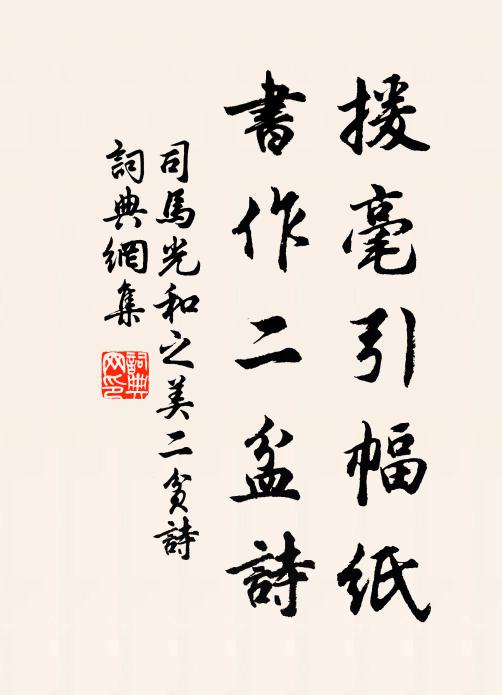 援毫引幅紙
書作二盆詩
司馬光和之美二貧詩
詞典網集
詞典網印